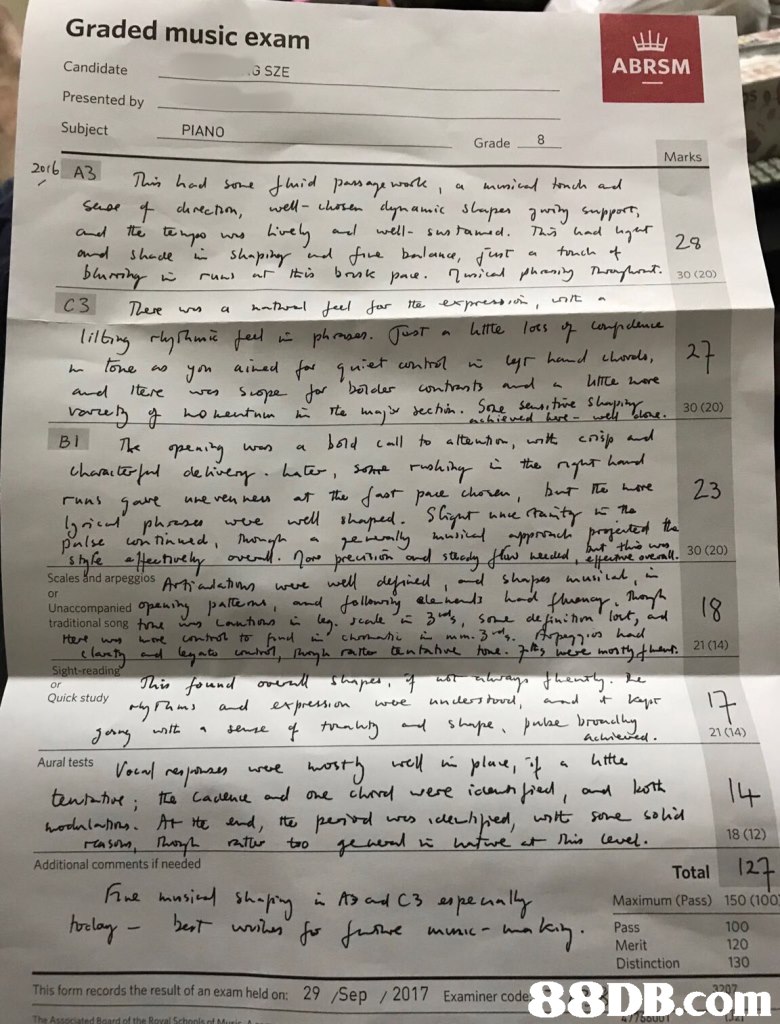 Graded music exam
ABRSM
Candidate G SZE
Presented by
Subject PIANO
Grade 8
Marks
2016 A3 This had some fluid passagework, a musical touch and
sense of direction, well-chosen dynamic shapes giving support,
and the tempo was lively and well-sustained. This had light
and shade in shaping and fine balance, just a touch of
blurring in runs at this brisk pace. Musical phrasing throughout.
28
30 (20)
C3 There was a natural feel for the expression, with a
lilting rhythmic feel in phrases. Just a little loss of confidence
in tone as you aimed for quiet control in left hand chords,
and there was scope for bolder contrasts and a little more
variety of momentum in the major section. Some sensitive shaping
achieved here - well done.
27
30 (20)
B1 The opening was a bold call to attention, with crisp and
characterful delivery. Later, some rushing in the right hand
runs gave unevenness at the fast pace chosen, but the more
lyrical phrases were well shaped. Slight uncertainty in the
pulse continued, though a generally musical approach projected the
style effectively overall. More precision and steady flow needed, but this was
effective overall.
23
30 (20)
Scales and arpeggios
or
Unaccompanied
traditional song
Articulations were well defined, and shapes musical, in
opening patterns, and following elements had fluency, though
tone was cautious in leg. scale in 3rds, some definition lost, and
there was more control to find in chromatic in mm. 3rds. Arpeggios had
clarity and legato control, though rather tentative tone. 7ths were mostly fluent.
18
21 (14)
Sight-reading
or
Quick study
This found overall shapes, if not always fluently. The
rhythms and expression were understood, and it kept
going with a sense of tonality and shape, pulse broadly
achieved.
17
21 (14)
Aural tests
Vocal responses were mostly well in place, if a little
tentative; the cadence and one chord were identified, and both
modulations. At the end, the period was identified, with some solid
reasons, though rather too general in nature at this level.
14
18 (12)
Additional comments if needed
Fine musical shaping in A3 and C3 especially
today - best wishes for future music-making.
Total 127
Maximum (Pass) 150 (100)
Pass 100
Merit 120
Distinction 130
This form records the result of an exam held on: 29 /Sep / 2017 Examiner code
88DB.com
The Associated Board of the Royal Schools of Music